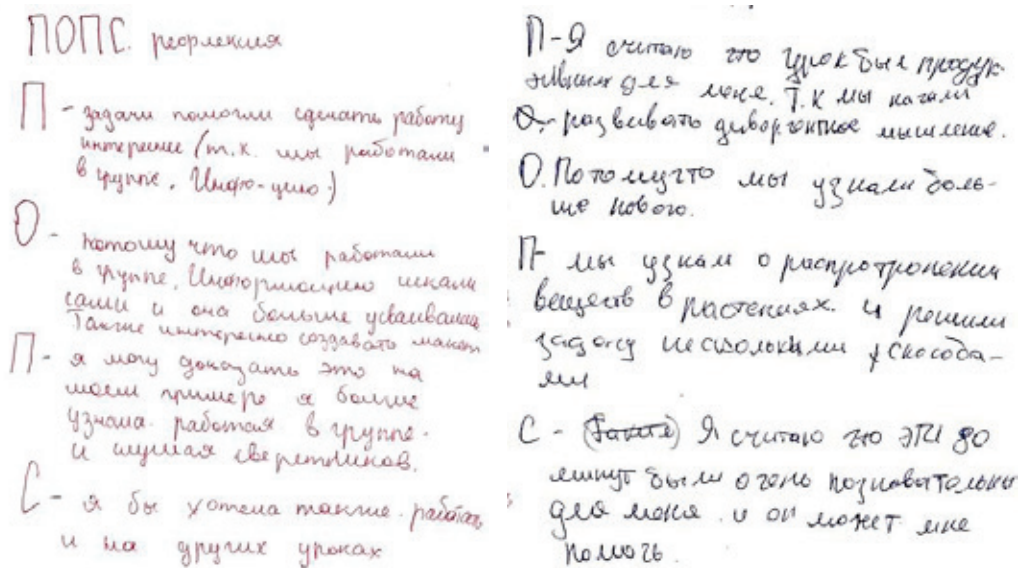 ПОПС. рефлекция
П - задачи помогли сделать работу
интереснее (т.к. мы работали
в группе. Инфо-цию.)
О - потому что мы работали
в группе. Информацию искали
сами и она больше усваивалась
Также интересно создавать макет
П - я могу доказать это на
моём примере я больше
узнала работая в группе.
и слушая сверстников.
С - я бы хотела также работать
и на других уроках
П - Я считаю что урок был продук-
тивным для меня. Т.к мы начали
развивать диворгентное мышление.
О. Потомучто мы узнали боль-
ше нового.
П - мы узнали о распротронении
веществ в растениях. и решили
задачу несколькими способа-
ми
С - Я считаю что эти 80
минут были очень познавательны
для меня. и он может мне
помочь.